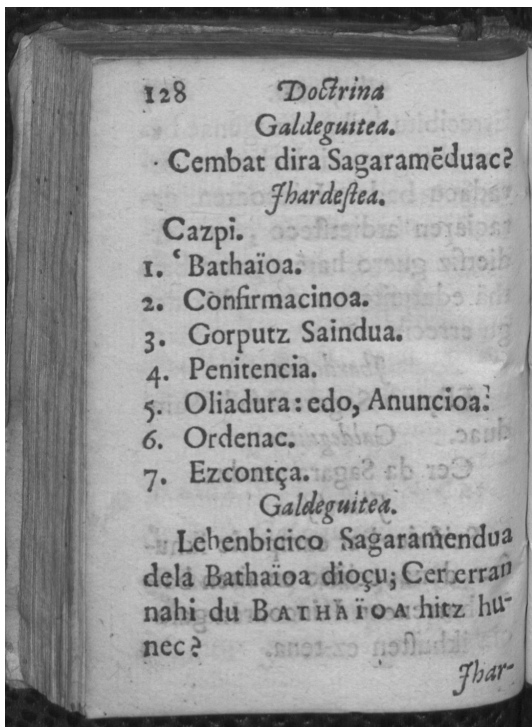 128 Doctrina
Galdeguitea.
Cembat dira Sagaramẽduac?
Jhardeſtea.
Cazpi.
1. Bathaïoa.
2. Confirmacinoa.
3. Gorputz Saindua.
4. Penitencia.
5. Oliadura: edo, Anuncioa.
6. Ordenac.
7. Ezcontça.
Galdeguitea.
Lehenbicico Sagaramendua
dela Bathaïoa dioçu; Cer erran
nahi du BATHAÏOA hitz hu-
nec?
Jhar-